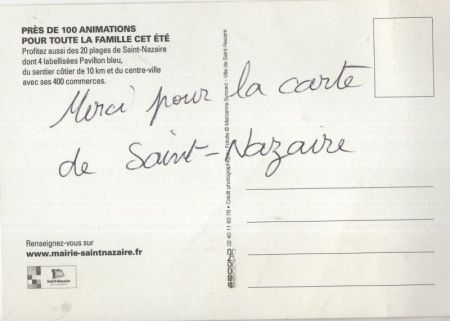 PRÈS DE 100 ANIMATIONS
POUR TOUTE LA FAMILLE CET ÉTÉ
Profitez aussi des 20 plages de Saint-Nazaire
dont 4 labellisées Pavillon bleu,
du sentier côtier de 10 km et du centre-ville
avec ses 400 commerces.
Merci pour la carte
de Saint-Nazaire
Renseignez-vous sur
www.mairie-saintnazaire.fr
Saint-Nazaire
02 40 11 63 78 • Crédit photographique : Fotolia © Marzanna Syncerz - Ville de Saint-Nazaire